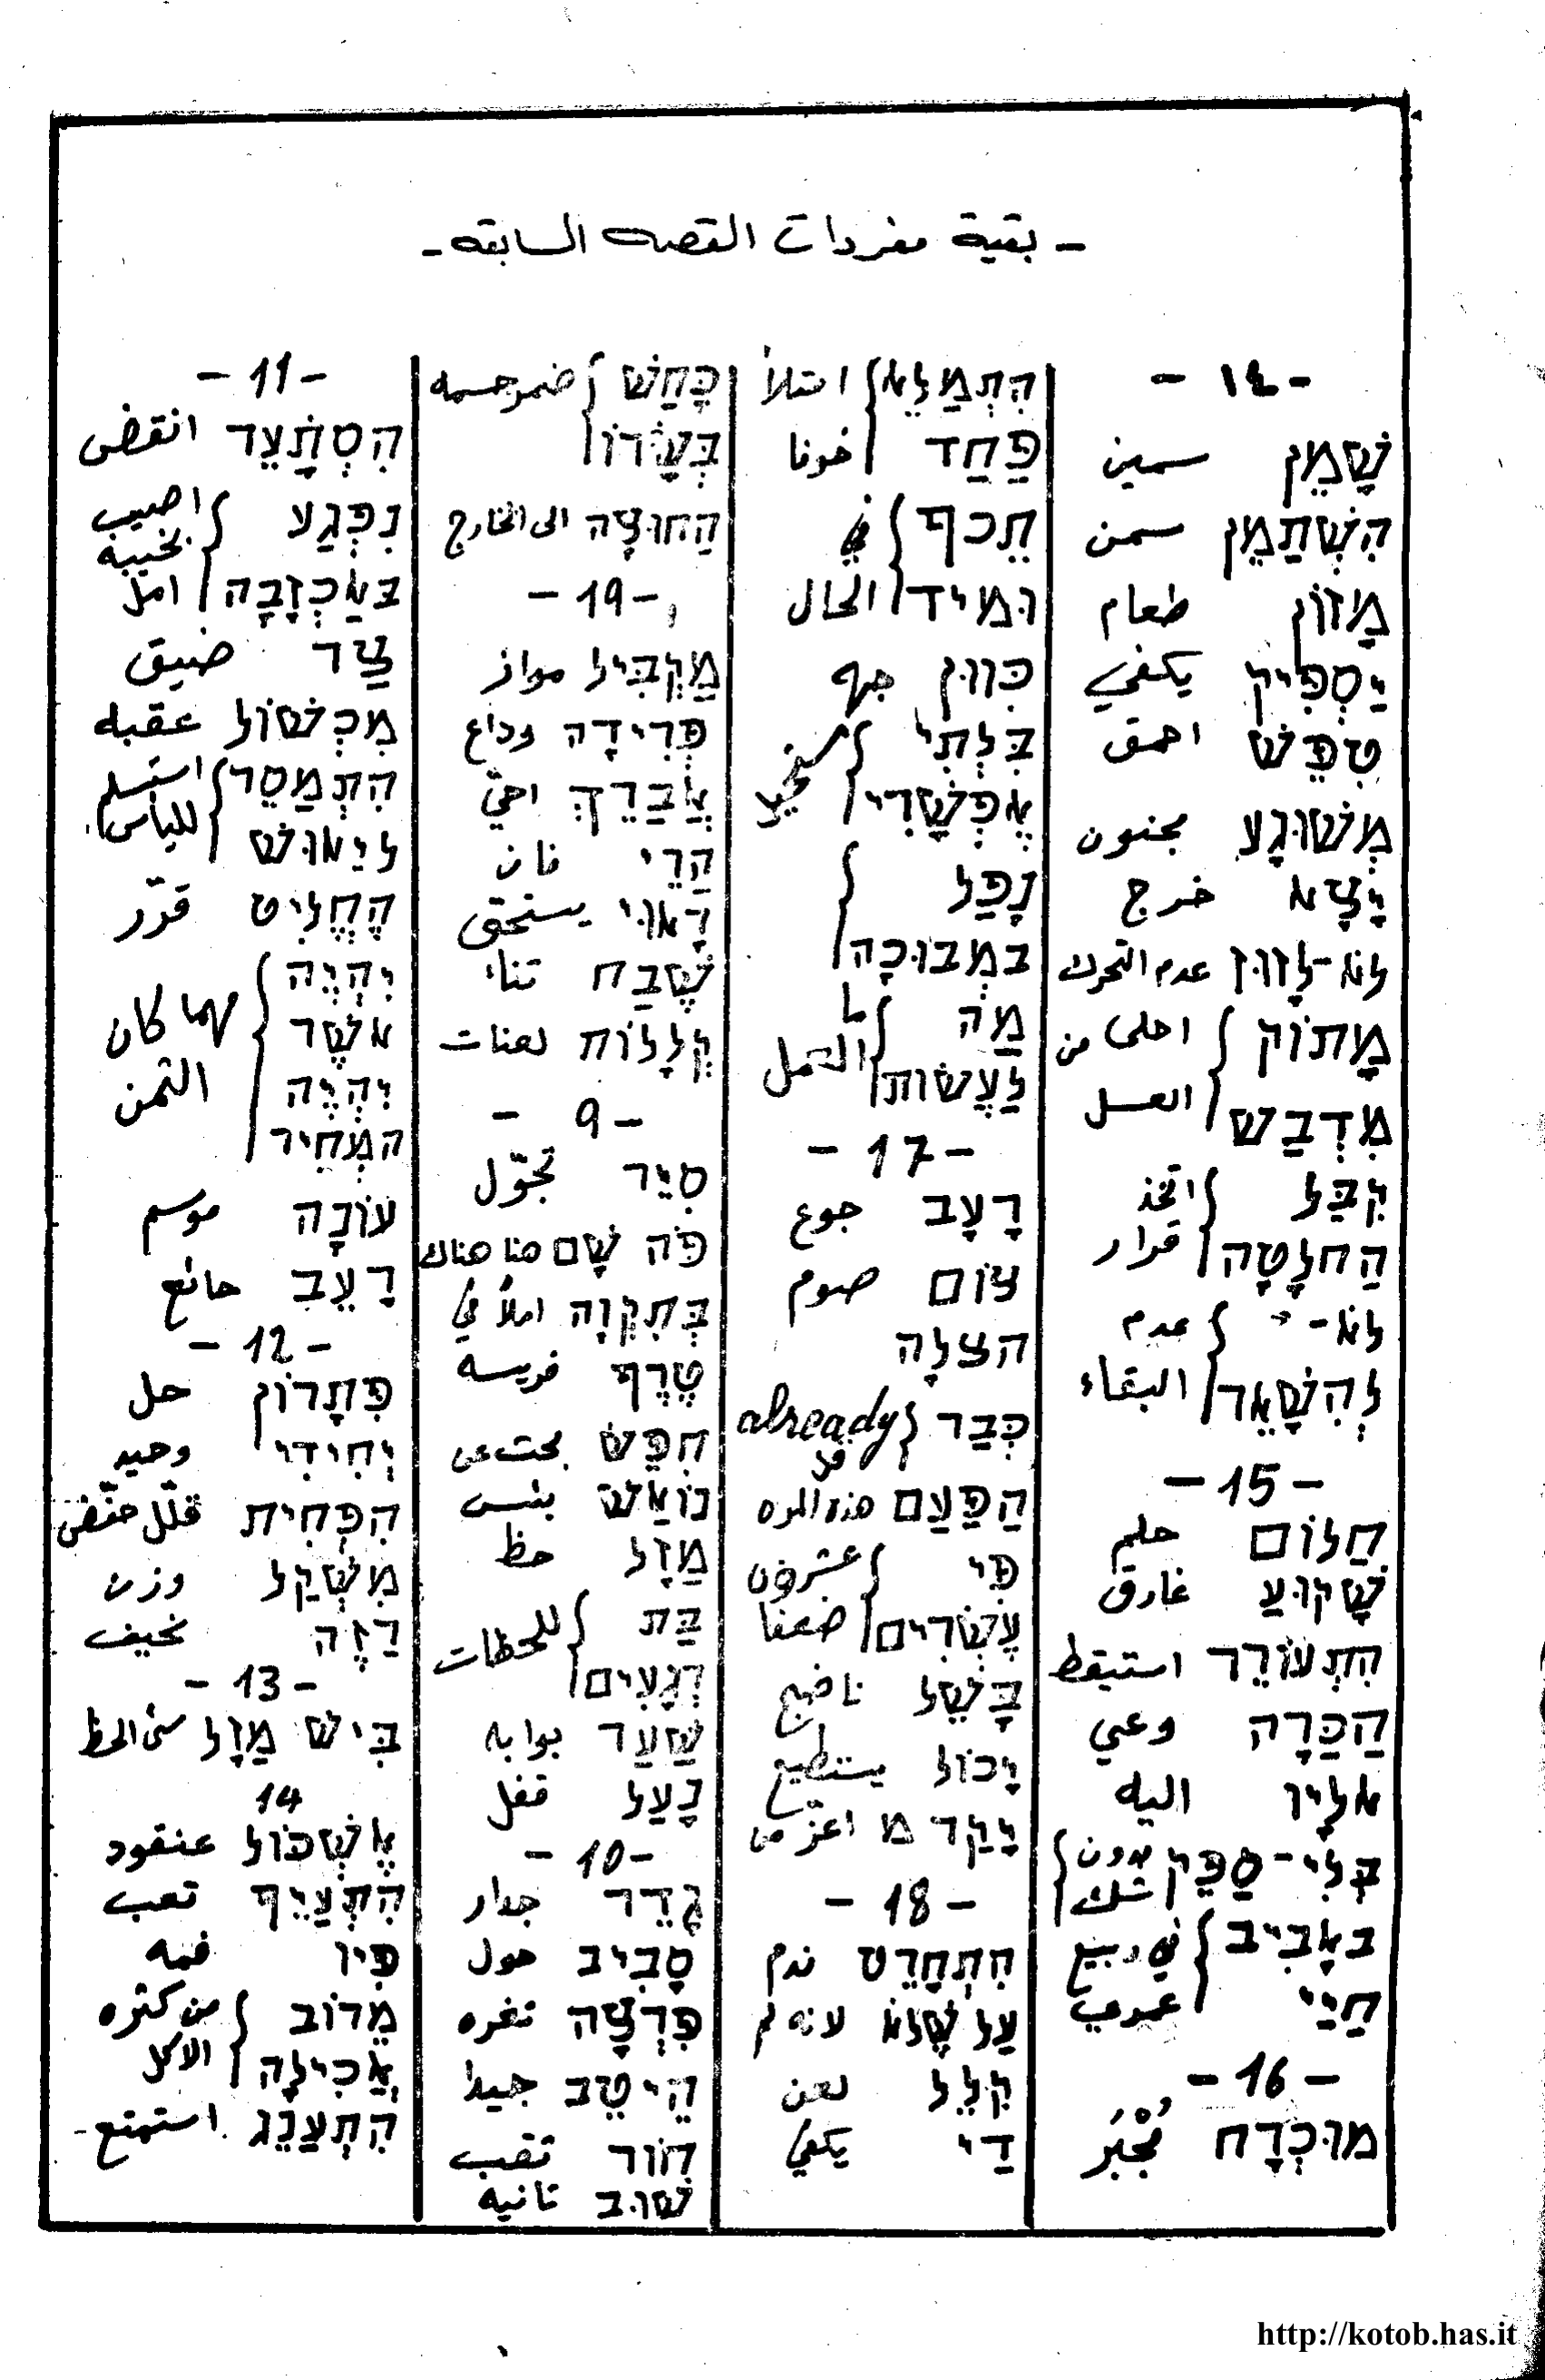 - بقية مفردات القصه السابقه -
- ١٤ -
שָׁמֵן سمين
הִשְׁתַמֵן سمن
מָזוֹן طعام
יַסְפִּיק يكفي
טִפֵּשׁ احمق
מְשׁוּגָע مجنون
יָצָא خرج
לא-לָזוּז عدم التحرك
מָתוֹק احلى من
מִדְבַשׁ العسل
קִבֵּל اتخذ
הַחלָטָה قرار
לא- عدم
לְהִשָׁאֵר البقاء
- 15 -
חַלוֹם حلم
שָׁקוּעַ غارق
הִתְעוֹרֵר استيقظ
הַכַּרָה وعي
אלָיו اليه
בְּלִי-סַפֵק بدون شك
באָבִיב في ربيع
חַיַי عمري
- 16 -
מוּכְרָח مُجْبَر
הִתְמַלֵא امتلأ
פַּחַד خوفا
תֵכף في
וּמיד الحال
כִּווּן جهه
בִּלְתִי
אֶפְשָׁרִי
נָפַל
במְבוּכָה
מַה ما
לַעֲשׂות العمل
- 17 -
רָעָב جوع
צוֹם صوم
הצלָה
כְּבַר already قد
הַפַּעַם هذه المره
פִּי عشرون
עֶשְׂרִים ضعفا
בָּשֵׁל ناضج
יָכוֹל يستطيع
יָקַר מ اعزّ من
- 18 -
הִתְחָרֵט ندم
עַל שֶׁלא لانه لم
קִלֵל لعن
דַי يكفي
כָּחַשׁ ضمر جسمه
בְּשָׂרוֹ
הַחוּצָה الى الخارج
- 19 -
מַקְבִּיל مواز
פְּרִידָה وداع
אֲבַרֵךְ احيّ
הַרֵי فان
רָאוּי يستحق
שֶׁבַח ثناء
קְלָלוֹת لعنات
- 9 -
סִיֵר تجوّل
פֹּה שָׁם هنا هناك
בְּתִקְוָה املاً في
טֶרֶף فريسه
חִפֵּשׂ بحث عن
נוֹאַשׁ يئس
מַזָל حظ
בַּת للحظات
רְגָעִים
שַׁעַר بوابه
נָעַל قفل
- 10 -
גָדֵר جدار
סָבִיב حول
פִּרְצָה ثغره
הֵיטֵב جيدا
חוֹר ثقب
שׁוּב ثانيه
- 11 -
הִסְתָעֵר انقض
נִפְגַע اصيب
באַכְזָבָה بخيبه امل
צַר ضيق
מִכְשׁוֹל عقبه
הִתְמַסֵר استسلم
ליֵאוּשׁ لليأس
הֶחֱלִיט قرّر
יִהְיֶה مهما كان
אשֶׁר الثمن
יִהְיֶה
המְחִיר
עוֹנָה موسم
רָעֵב جائع
- 12 -
פִּתָרוֹן حل
יְחִידִי وحيد
הִפְחִית قلّل خفّض
מִשְׁקַל وزن
רַזֶה نحيف
- 13 -
בִּישׁ מַזָל سيء الحظ
14
אֶשְׁכּוֹל عنقود
הִתְעַיֵף تعب
פִּיו فمه
מֵרוֹב من كثره
אֲכִילָה الاكل
הִתְעַנֵג استمتع -
http://kotob.has.it